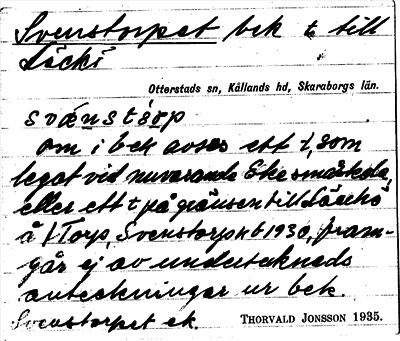 Svenstorpet bek t. till
Läckö
Otterstads sn, Kållands hd, Skaraborgs län.
svænstórp
Om i bek avses ett t, som
legat vid nuvarande Ekesmåskola,
eller ett t på gränsen till Läckö
å 1 Torp, Svenstorp kb 1930, fram-
går ej av undertecknads
anteckningar ur bek.
Svenstorpet ek.
THORVALD JONSSON 1935.